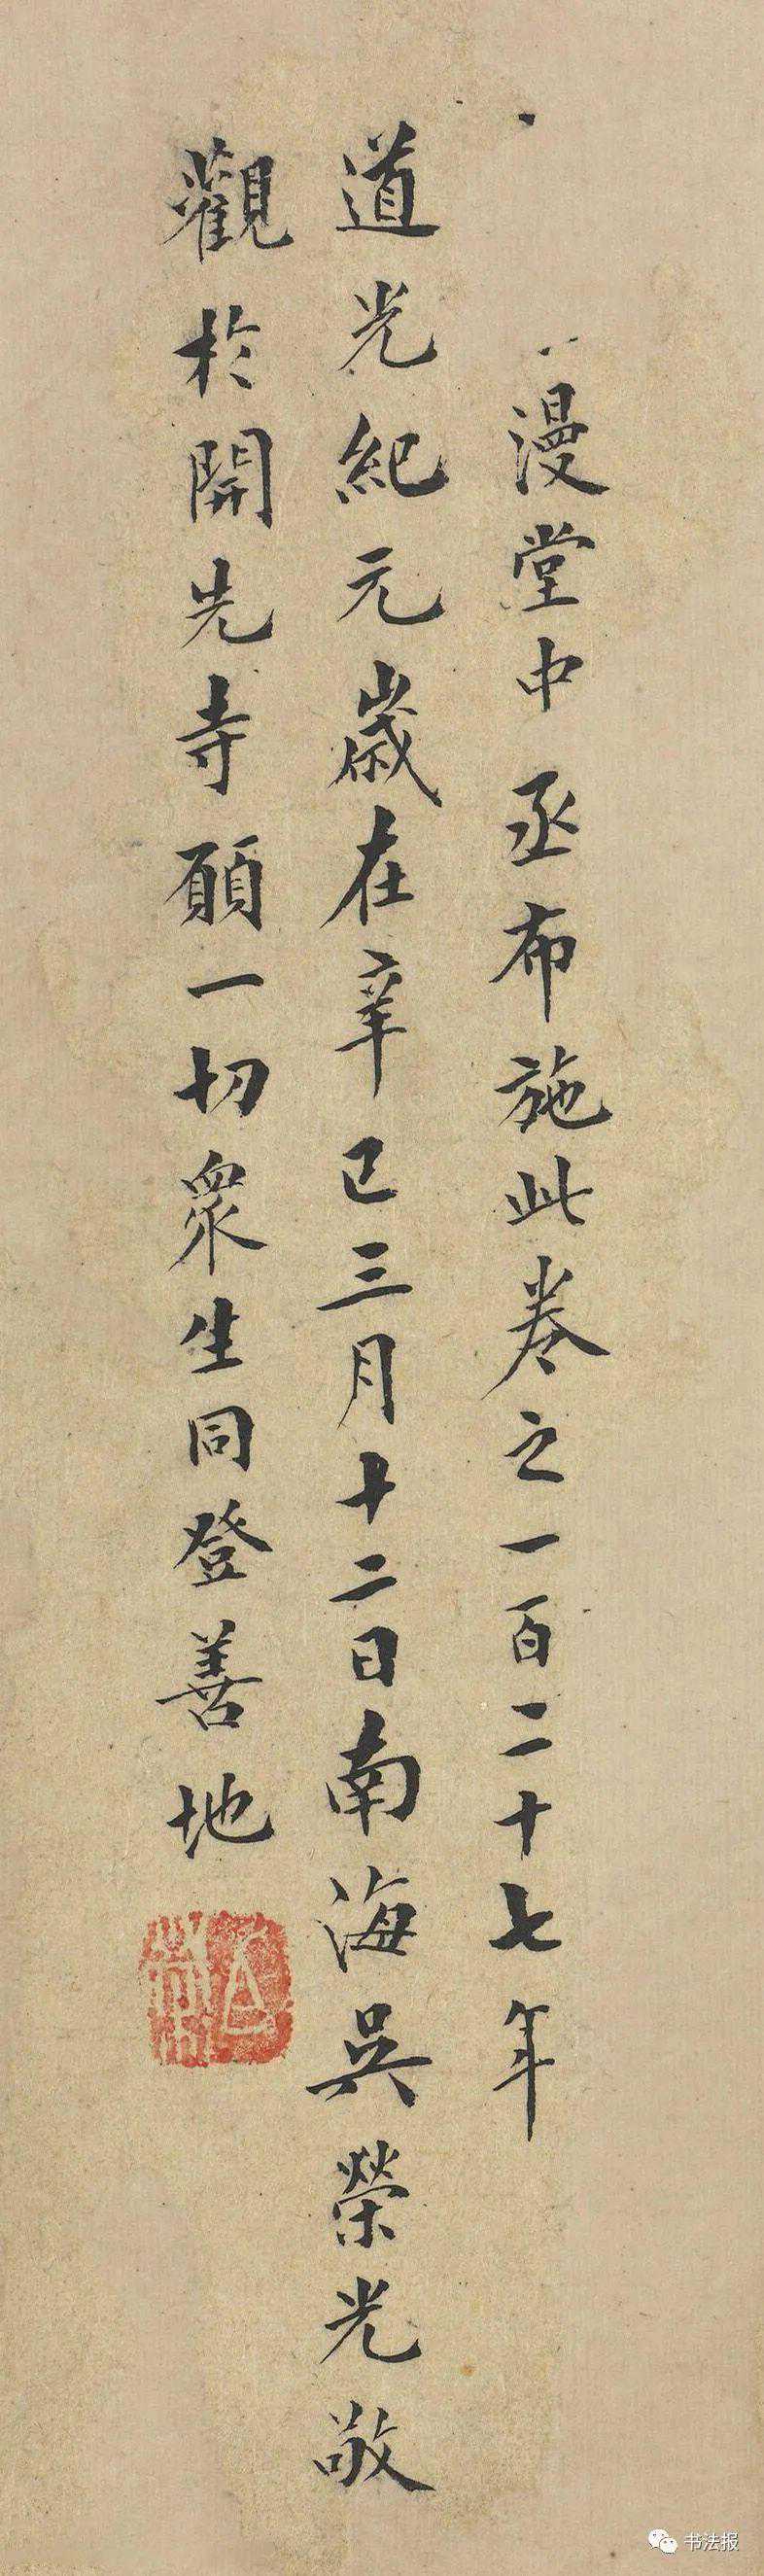 漫堂中丞布施此卷之一百二十七年
道光紀元歳在辛巳三月十二日南海吳榮光敬
觀於開先寺願一切衆生同登善地
书法报